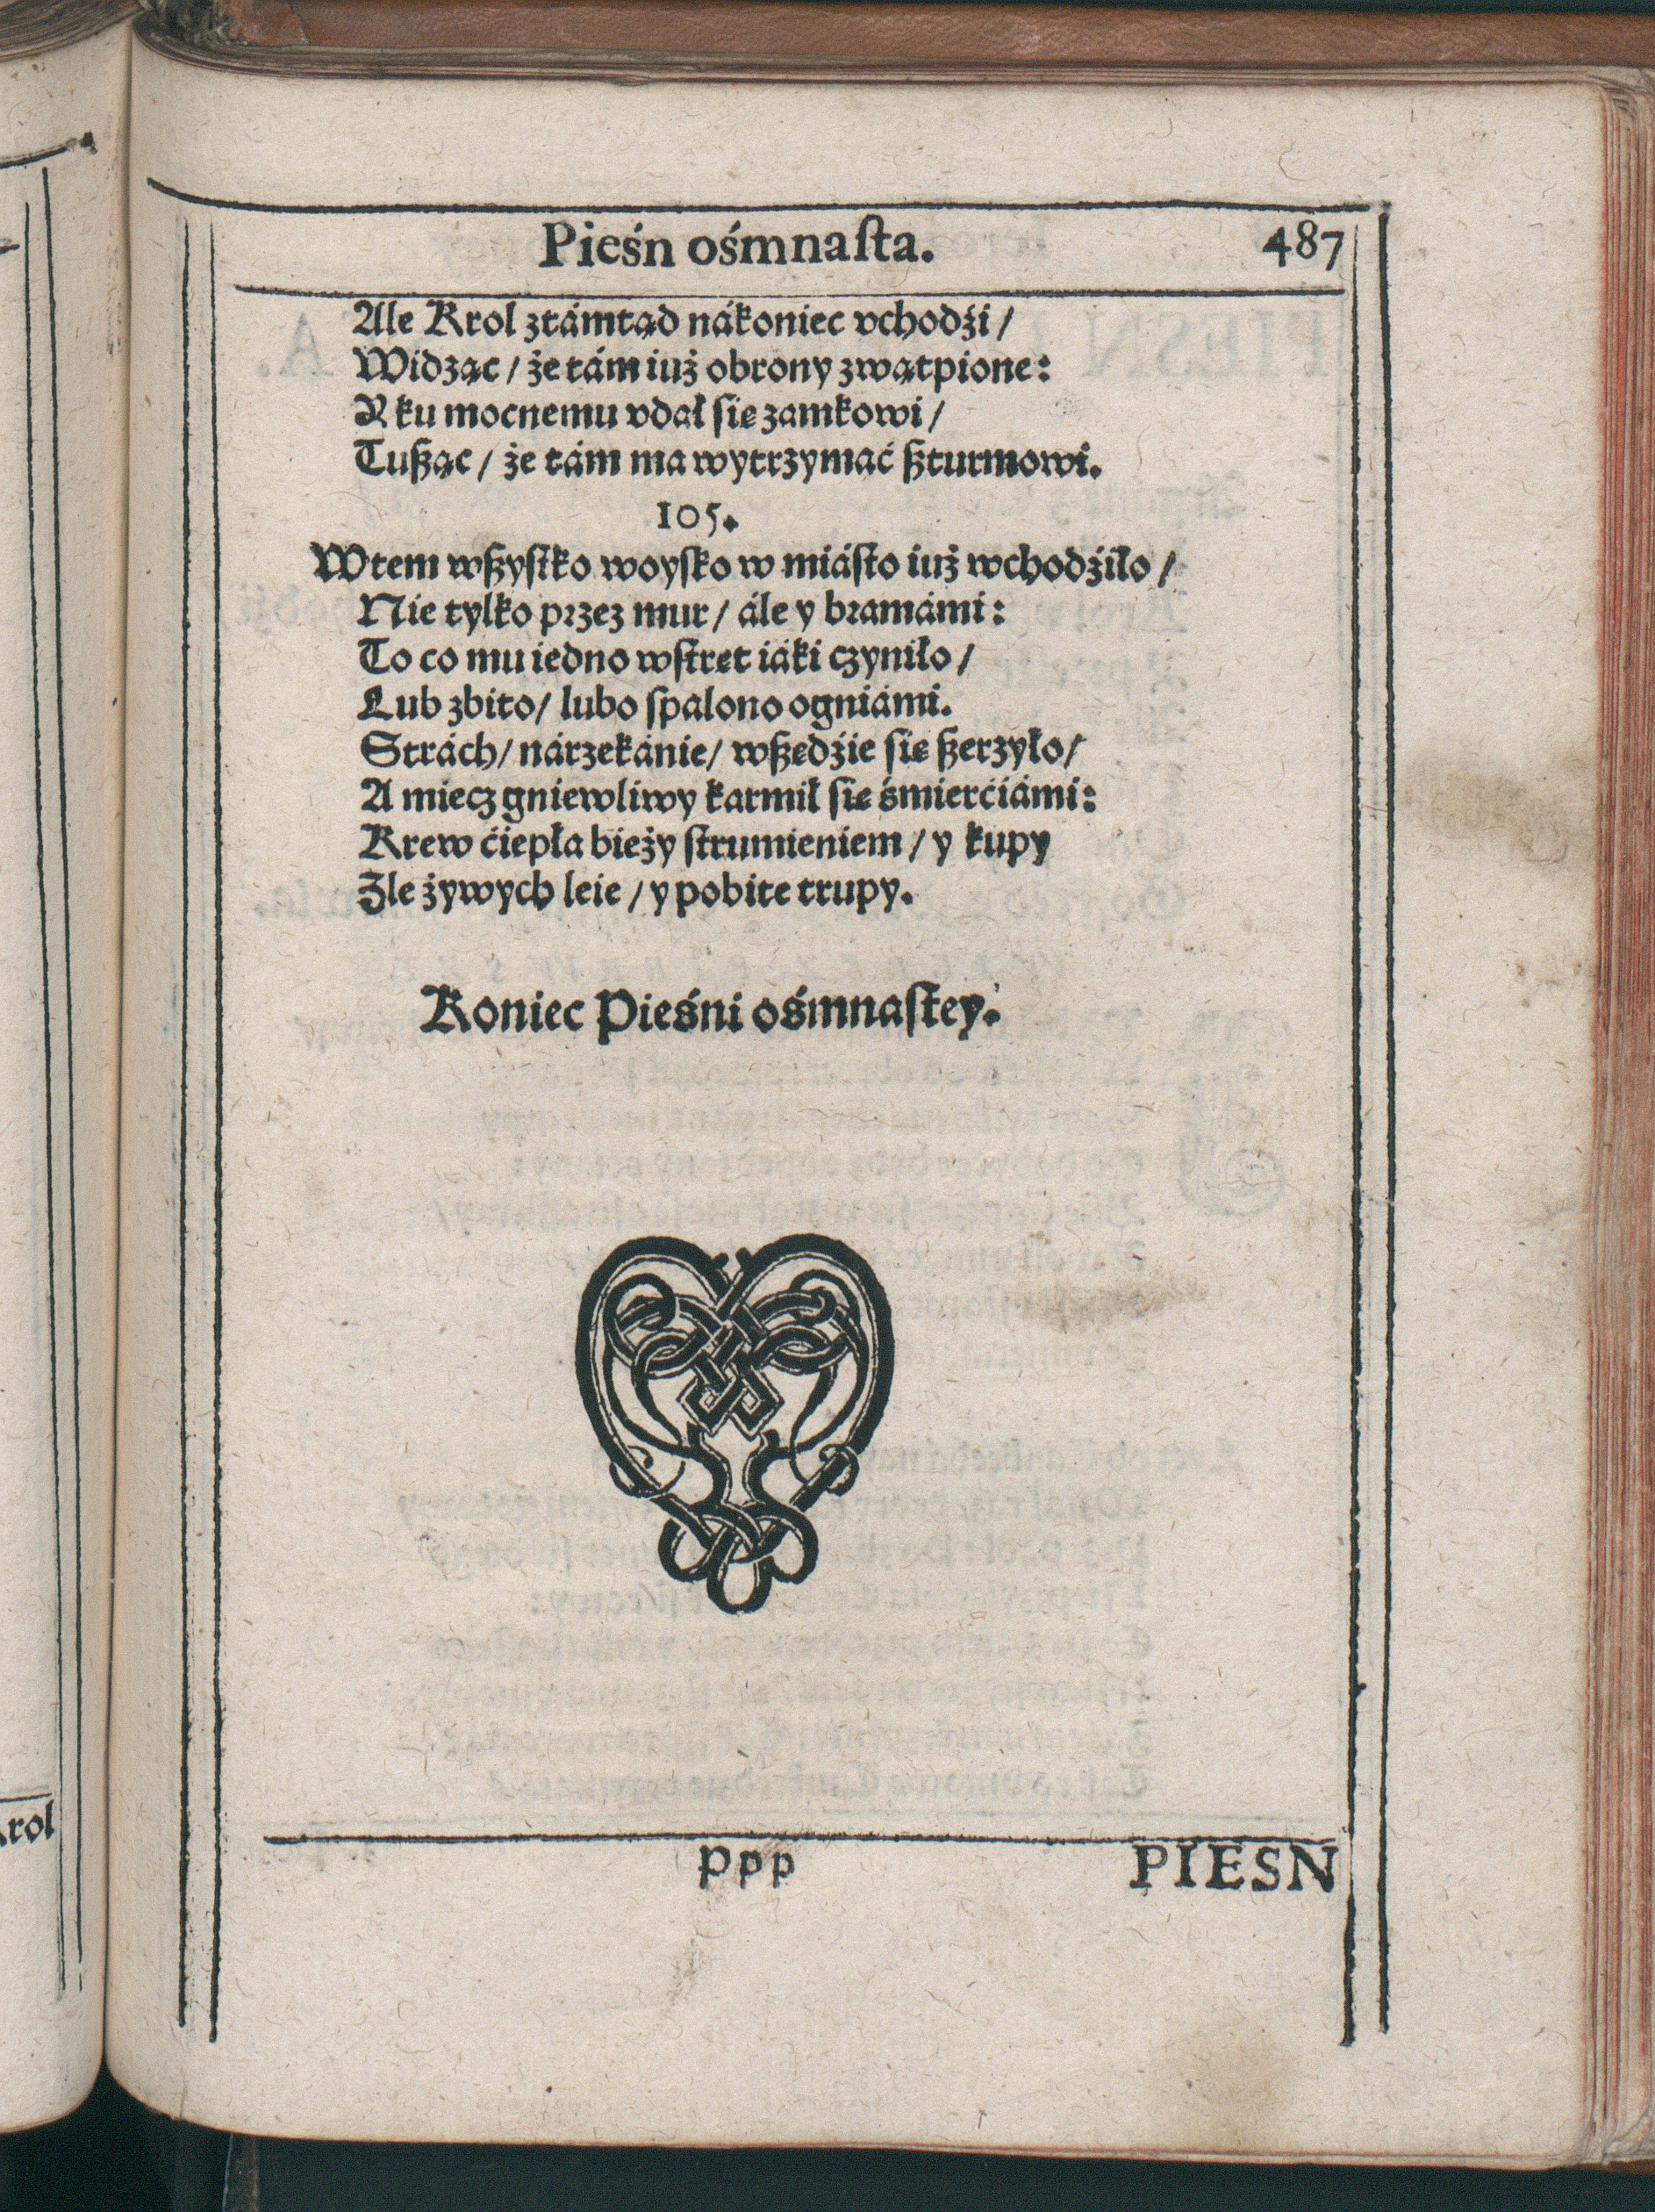 Pieśń ośmnaſta. 487
Ale Krol ztámtąd nákoniec vchodźi /
Widząc / że tám iuż obrony zwątpione:
Y ku mocnemu vdał ſie zamkowi /
Tußąc / że tám ma wytrzymáć ßturmowi.
105.
Wtem wßyſtko woyſko w miáſto iuż wchodźiło /
Nie tylko przez mur / ále y bramámi:
To co mu iedno wſtręt iáki czyniło /
Lub zbito / lubo ſpalono ogniámi.
Strách / nárzekánie / wßędźie ſie ßerzyło /
A miecz gniewliwy karmił ſie śmierćiámi:
Krew ćiepła bieży ſtrumieniem / y kupy
Źle żywych leie / y pobite trupy.
Koniec Pieśni ośmnaſtey.
Ppp PIESN
rol